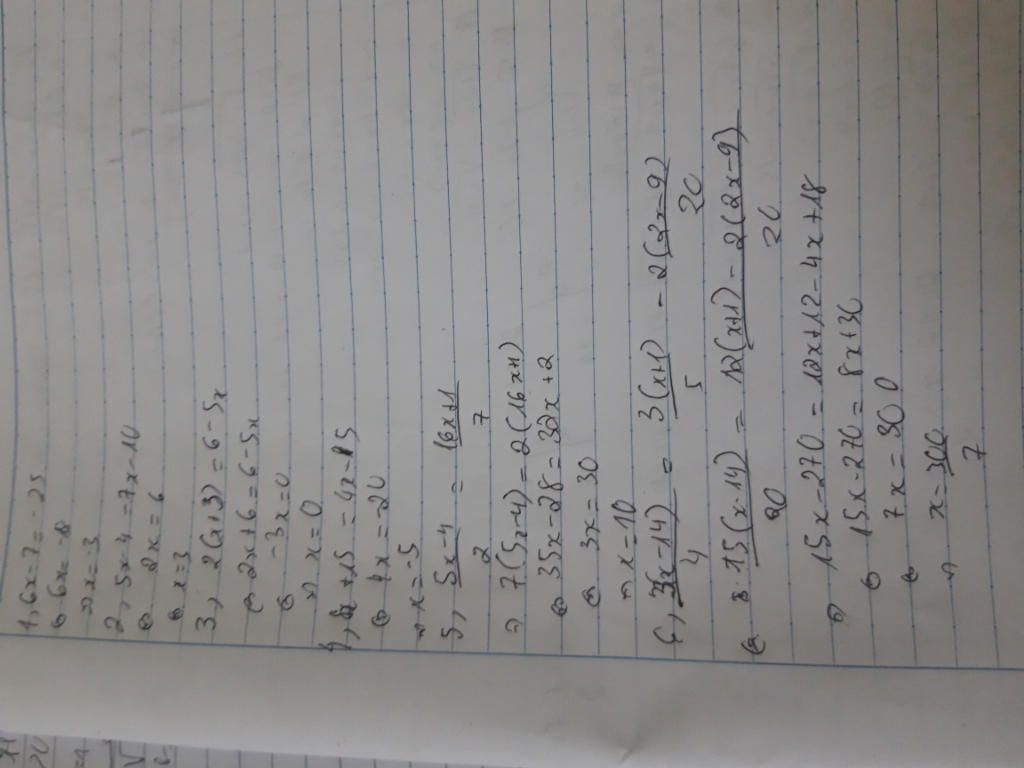 1, 6x-7=-25
⇔ 6x=-18
⇒ x=-3
2, 5x-4=7x-10
⇔ 2x=6
⇔ x=3
3, 2(x+3)=6-5x
⇔ 2x+6=6-5x
⇔ -3x=0
⇒ x=0
+15=-4x-
⇔ 4x=-20
⇒ x=-5
5, 5x-4/2 = 16x+1/7
⇒ 7(5x-4)=2(16x+1)
⇔ 35x-28=32x+2
⇔ 3x=30
⇒ x=10
6, (x-14)/4 = 3(x+1)/5 - 2(x-9)/20
⇔ 15(x-14) = 12(x+1)-2(2x-9)/20
⇒ 15x-270=12x+12-4x+18
⇔ 15x-270=8x+30
⇔ 7x=300
⇒ x=300/7